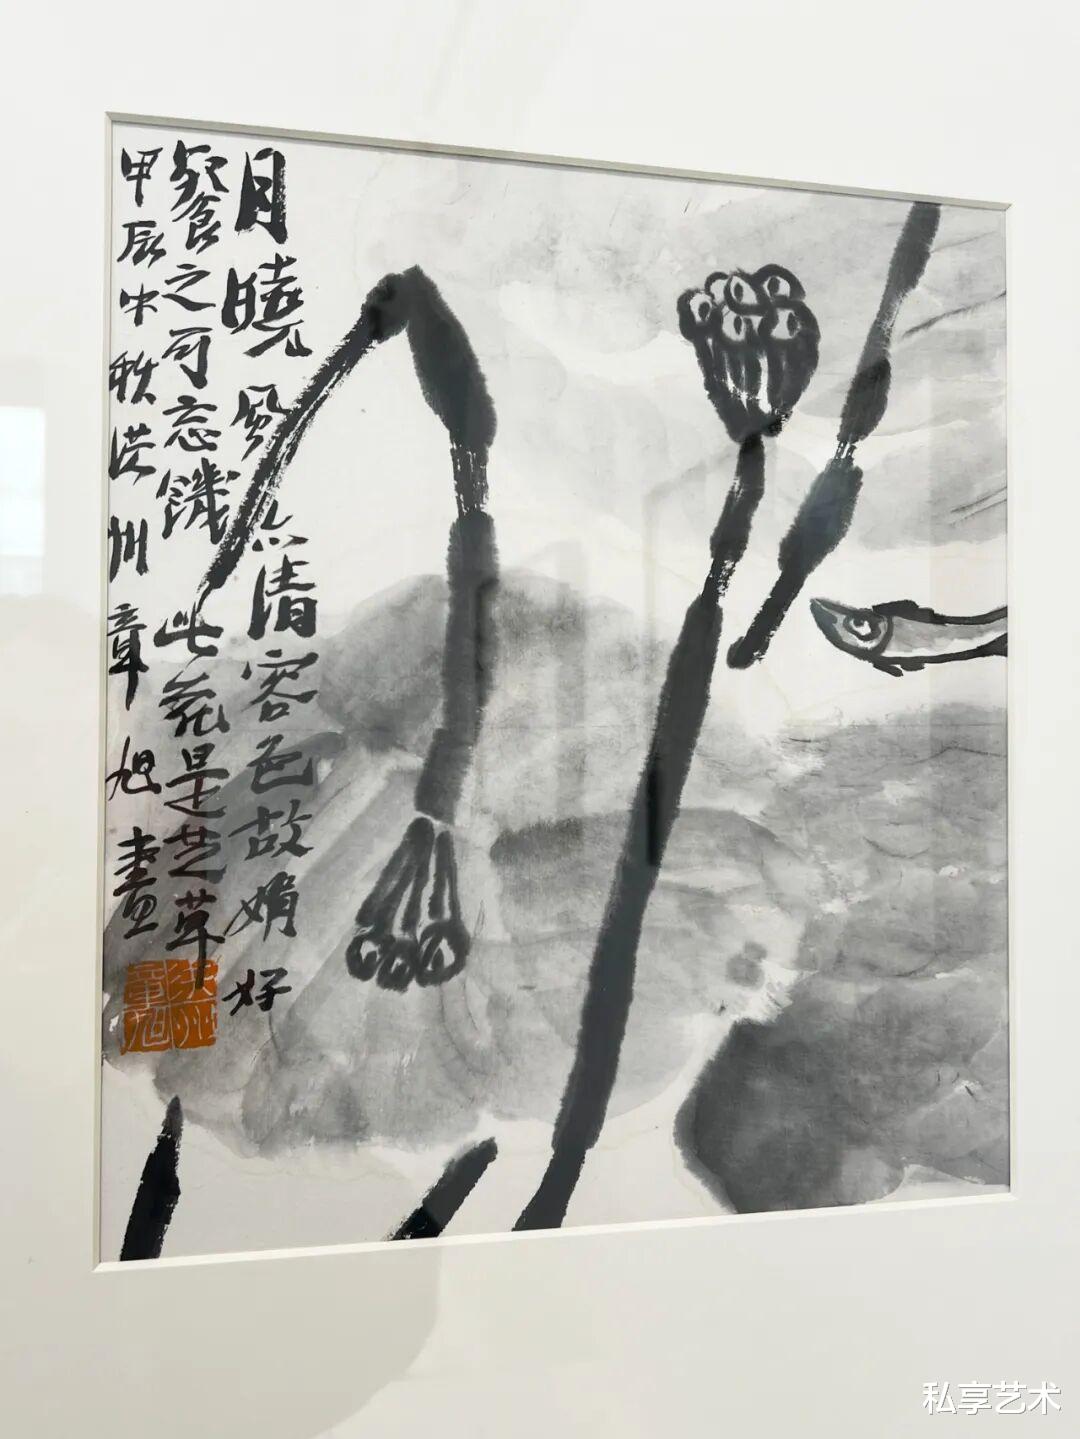 月曉風亦清容色故娟好
餐之可忘饑此花是芝草
甲辰中秋洪州章旭畫
私享艺术